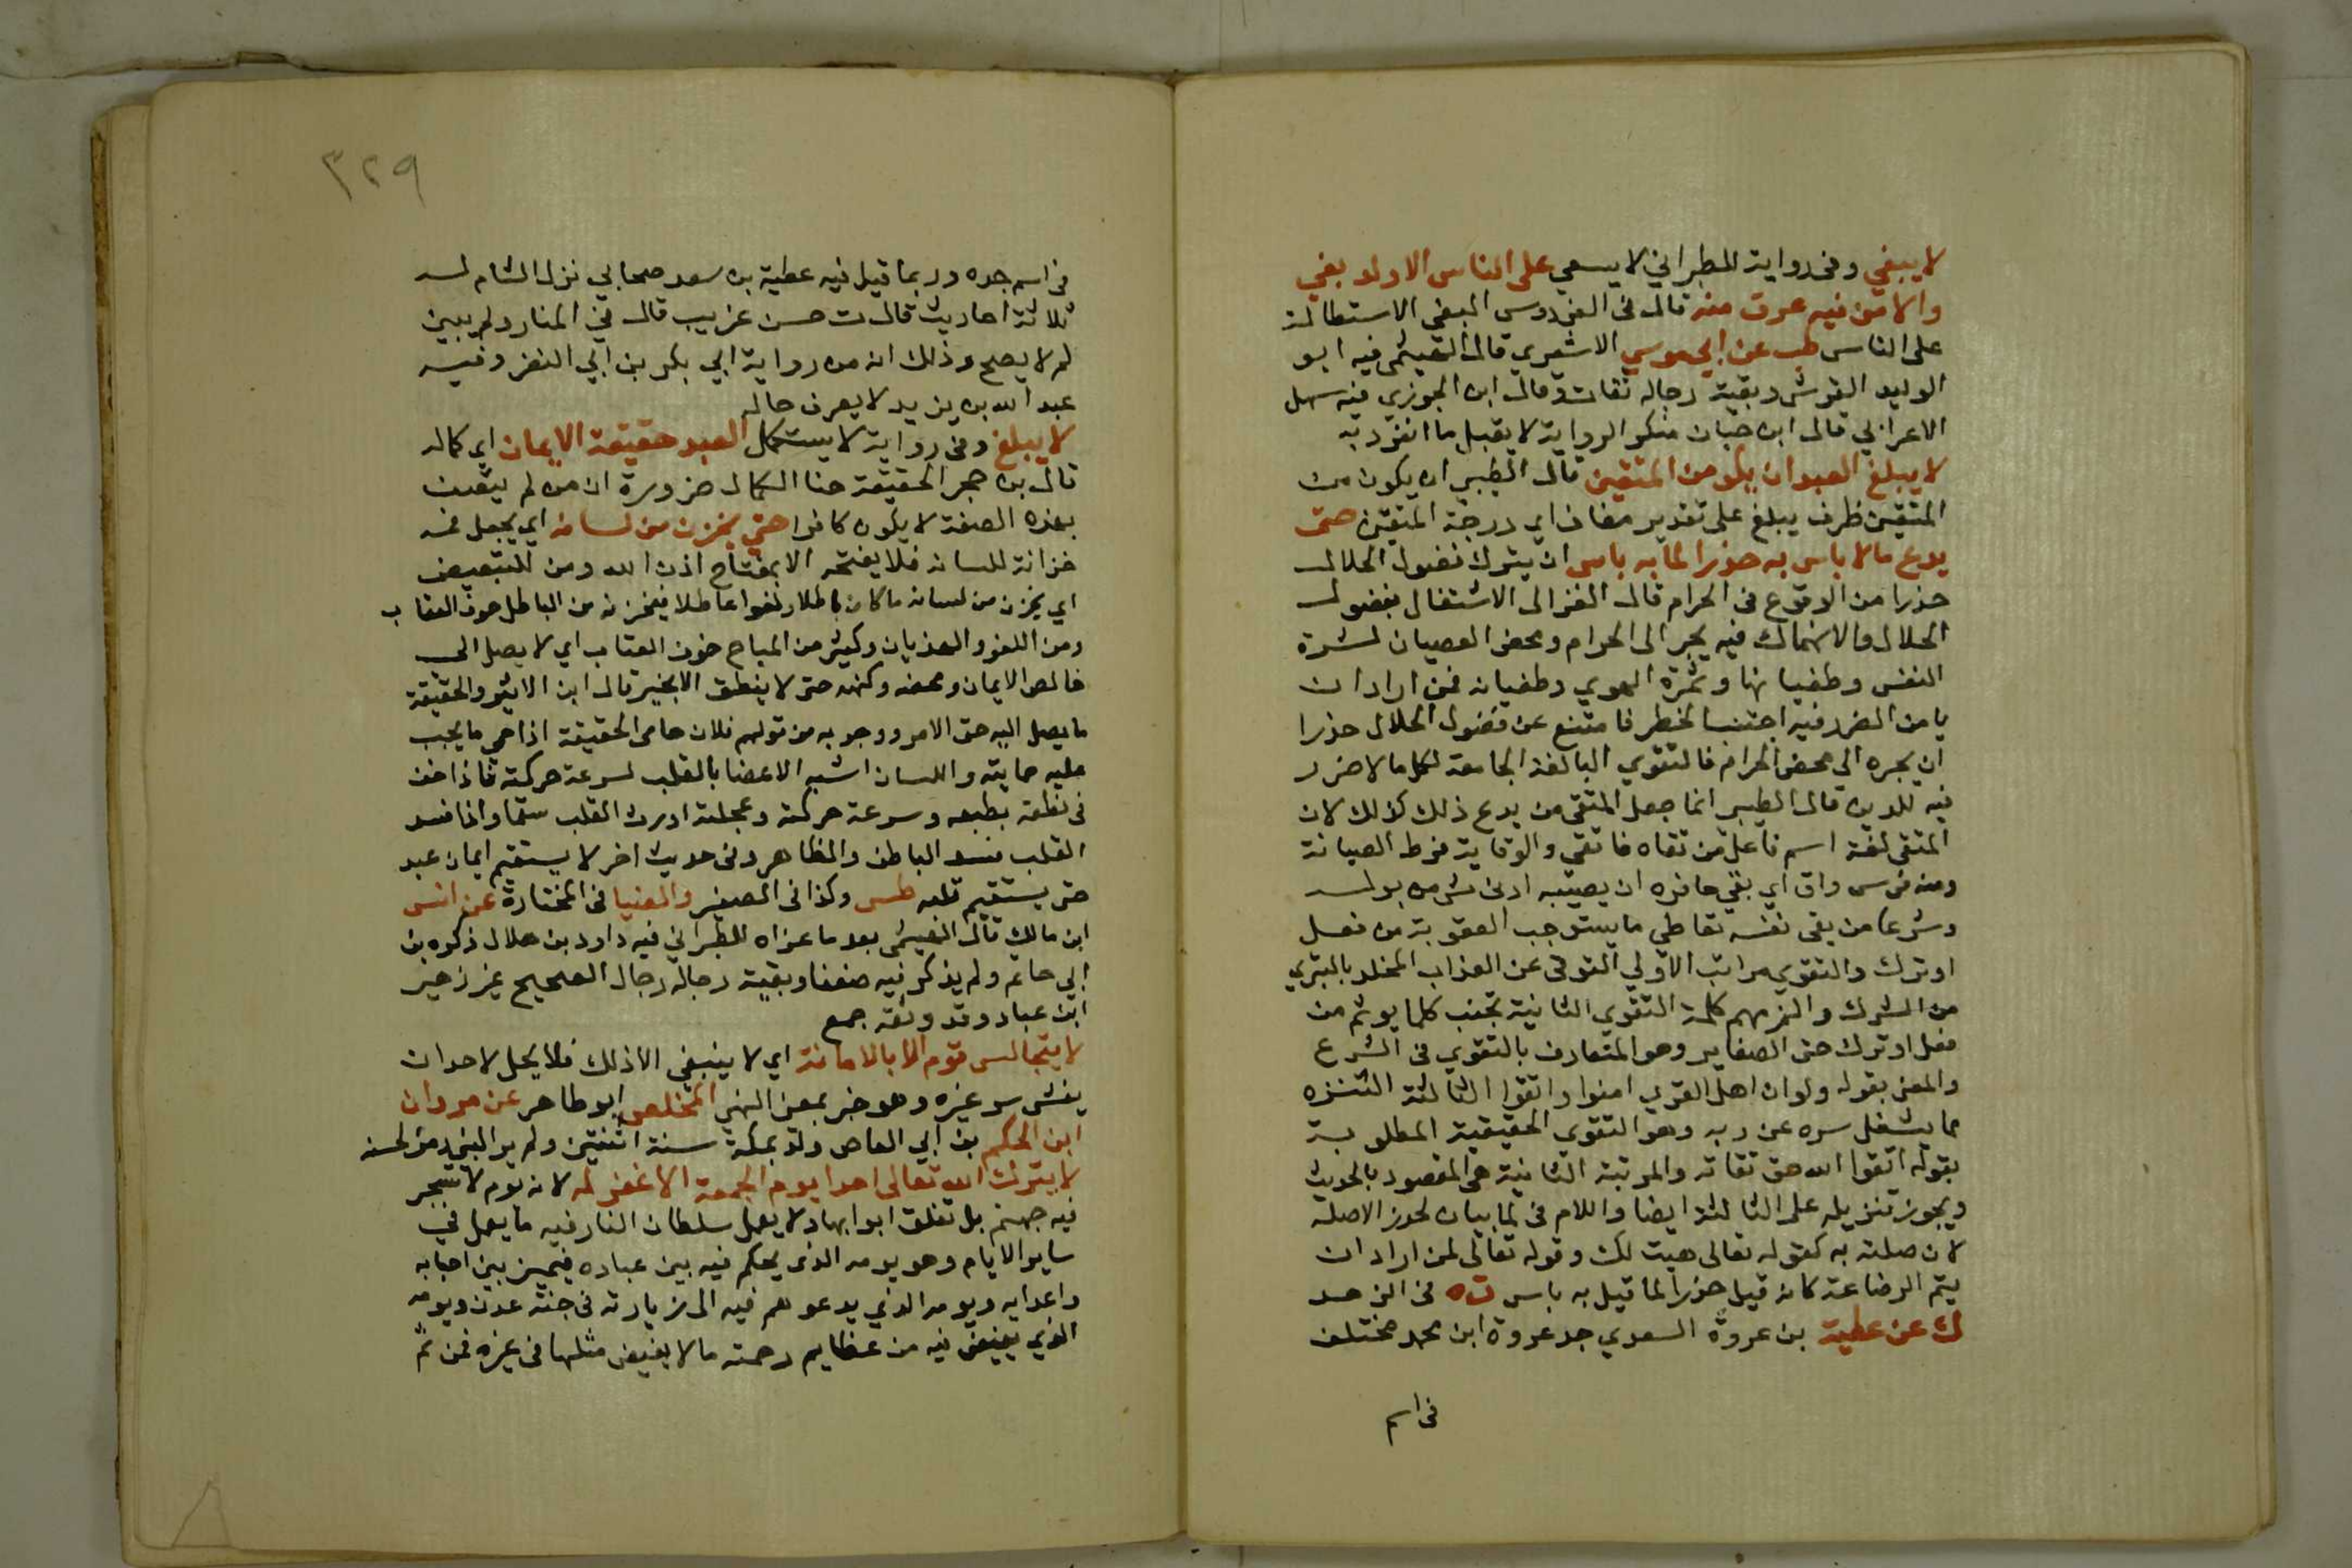 لا يبغي وفي رواية للطبراني لا يسعي على الناس الا ولد بغي
والا من فيه عرق منه قال في الفردوس البغي الاستطالة
على الناس طب عن ابي موسي الاشعري قال الهيثمي فيه ابو
الوليد القرشي وبقية رجاله ثقات وقال ابن الجوزي فيه سهل
الاعرابي قال ابن حبان منكر الرواية لا يقبل ما انفرد به
لا يبلغ العبد ان يكون من المتقين قال الطيبي ان يكون من
المتقين ظرف يبلغ على تقدير مضاف اي درجة المتقين حتى
يدع ما لا باس به حذرا لما به باس ان يترك فضول الحلال
حذرا من الوقوع في الحرام قال الغزالي الاشتغال بفضول
الحلال والانهماك فيه يجر الى الحرام ومحض العصيان لشرة
النفس وطغيانها وتمرة الهوي وطغيانه فمن اراد ان
يامن الضرر فيه اجتنب الخطر فامتنع عن فضول الحلال حذرا
ان يجره الى محض الحرام فالتقوي البالغة الجامعة لكل ما لا ضرر
فيه للدين قال الطيبي انما جعل المتقي من يدع ذلك كذلك لان
المتقي لغة اسم فاعل من تقاه فاتقي والوقاية فرط الصيانة
ومنه فرس واق اي يقي حافره ان يصيبه ادنى شي من بوله
وشرعا من يقي نفسه تعاطي ما يستوجب العقوبة من فعل
او ترك والتقوي مراتب الاولي التوقي عن العذاب المخلد بالتبري
من الشرك والزمهم كلمة التقوي الثانية تجنب كلما يوثم من
فعل او ترك حتى الصغاير وهو المتعارف بالتقوي في الشرع
والمعني بقوله ولو ان اهل القري امنوا واتقوا الثالثة التنزه
عما يشغل سره عن ربه وهو التقوي الحقيقية المطلوبة
بقوله اتقوا الله حق تقاته والمرتبة الثانية هي المقصود بالحديث
ويجوز تنزيله على الثالثة ايضا واللام في لما بيان لحذرا لا صلة
لان صلته به كقوله تعالى هيت لك وقوله تعالى لمن اراد ان
يتم الرضاعة كانه قيل حذرا لما قيل به باس ت ه في الزهد
ك عن عطية بن عروة السعدي جد عروة ابن محمد مختلف
في اسم
٣٢٩
في اسم جده وربما قيل فيه عطية بن سعد صحابي نزل الشام له
ثلاثة احاديث قال ت حسن غريب قال في المنار ولم يبين
لم لا يصح وذلك انه من رواية ابي بكر بن ابي النضر وفيه
عبد الله بن يزيد لا يعرف حاله
لا يبلغ وفي رواية لا يستكمل العبد حقيقة الايمان اي كماله
قال بن حجر الحقيقة هنا الكمال ضرورة ان من لم يتصف
بهذه الصفة لا يكون كافرا حتي يخزن من لسانه اي يجعل فمه
خزانة للسانه فلا يفتحه الا بمفتاح اذن الله ومن للتبعيض
اي يخزن من لسانه ما كان باطلا ولغوا عاطلا فيخزنه من الباطل خوف العقاب
ومن اللغو والهذيان وكثير من المباح خوف العتاب اي لا يصل الى
خالص الايمان ومحضه وكنهه حتى لا ينطق الا بخير قال ابن الاثير والحقيقة
ما يصل اليه حق الامر ووجوبه من قولهم فلان حامي الحقيقة اذا حمي ما يجب
عليه حمايته واللسان اشبه الاعضا بالقلب لسرعة حركته فاذا خف
في نطقه بطبعه وسرعة حركته وعجلته اورث القلب سقما واذا فسد
القلب فسد الباطن والظاهر وفي حديث اخر لا يستقيم ايمان عبد
حتى يستقيم قلبه طس وكذا في الصغير والضيا في المختارة عن انس
ابن مالك قال الهيثمي بعد ما عزاه للطبراني فيه داود بن هلال ذكره بن
ابي حاتم ولم يذكر فيه ضعفا وبقية رجاله رجال الصحيح غير زهير
ابن عباد وقد وثقه جمع
لا يتجالس قوم الا بالامانة اي لا ينبغي الا ذلك فلا يحل لاحد ان
يفشى سر غيره وهو خبر بمعني النهي المخلص ابو طاهر عن مروان
ابن الحكم بن ابي العاص ولد بمكة سنة اثنتين ولم ير النبي
لا يترك الله تعالى احدا يوم الجمعة الا غفر له لانه يوم لا تسجر
فيه جهنم بل تغلق ابوابها ولا يعمل سلطان النار فيه ما يعمل في
ساير الايام وهو يومه الذي يحكم فيه بين عباده فيميز بين احبابه
واعدايه ويومه الذي يدعوهم فيه الى زيارته في جنة عدن ويومه
الذي يفيض فيه من عظايم رحمته ما لا يفيض مثلها في غيره فمن ثم